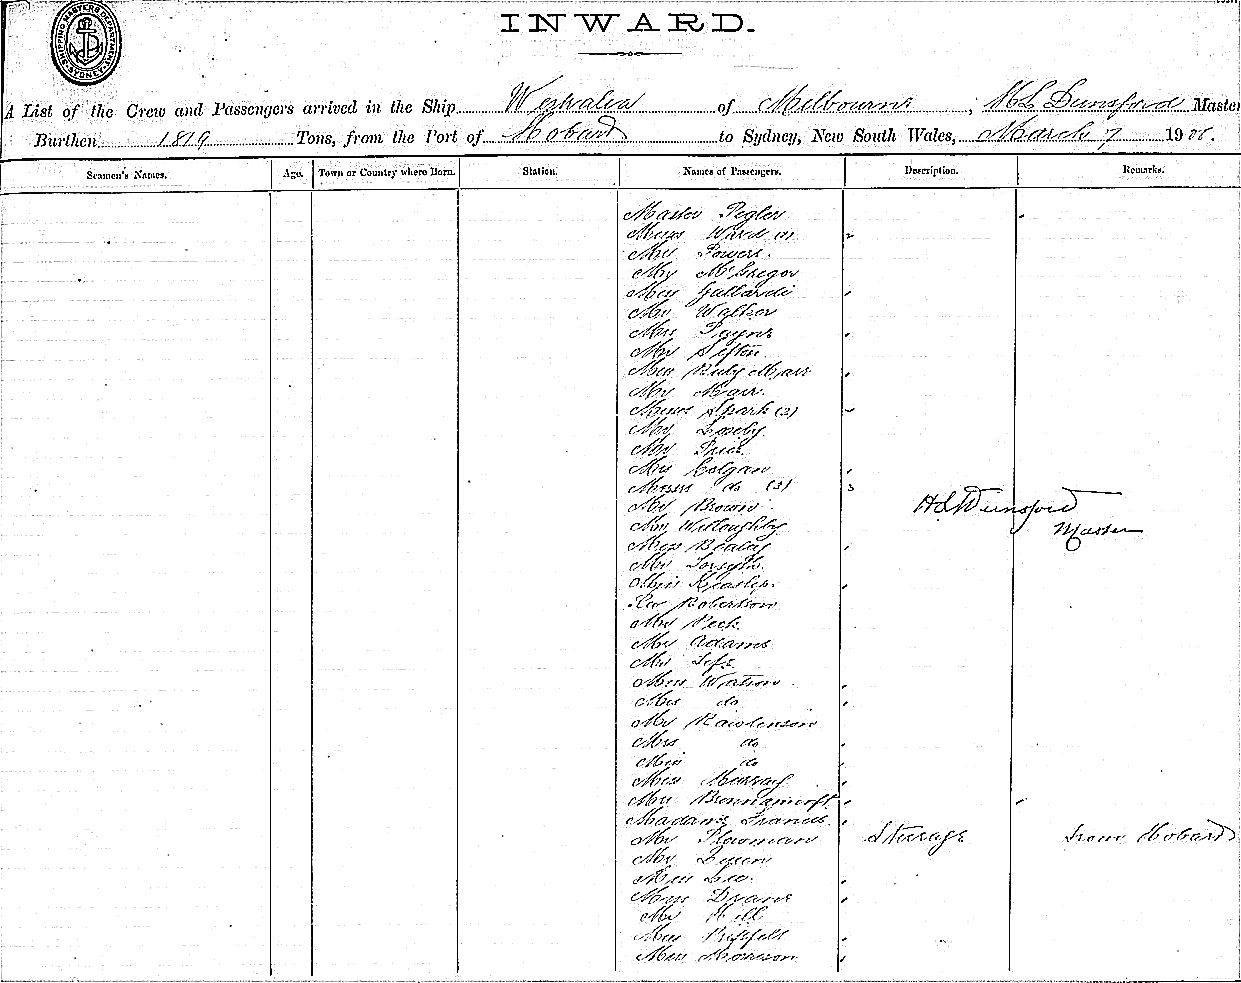 SHIPPING MASTERS DEPARTMENT SYDNEY
INWARD.
A List of the Crew and Passengers arrived in the Ship Westralia of Melbourne, H L Dunsford Master
Burthen 1819 Tons, from the Port of Hobart to Sydney, New South Wales, March 7 1900.
Seamen's Names. Age. Town or Country where Born. Station. Names of Passengers. Description. Remarks.
Master Pegler
Misses Ward
Mr Powers.
Mr McGregor
Miss Gallardi
Mr Walker
Mrs Payne
Mr Sifton
Miss Ruby Marr
Mr Marr.
Misses Spark (2)
Mr Loseby
Mr Price
Mrs Colgan
Misses do (3) 3
Mr Brown
Mr Willoughby
Miss Bealey
Mr Forsyth.
Miss
Rev Robertson
Mr Peck.
Mr Adams
Mr
Miss Watson
Miss do
Mr Rawlinson
Mrs do
Miss do
Miss Murray
Madame Francis.
Mr Plowman Steerage From Hobart
Mr
Miss Lee.
Mr Hill
Miss
Miss Morrison
H L Dunsford
Master